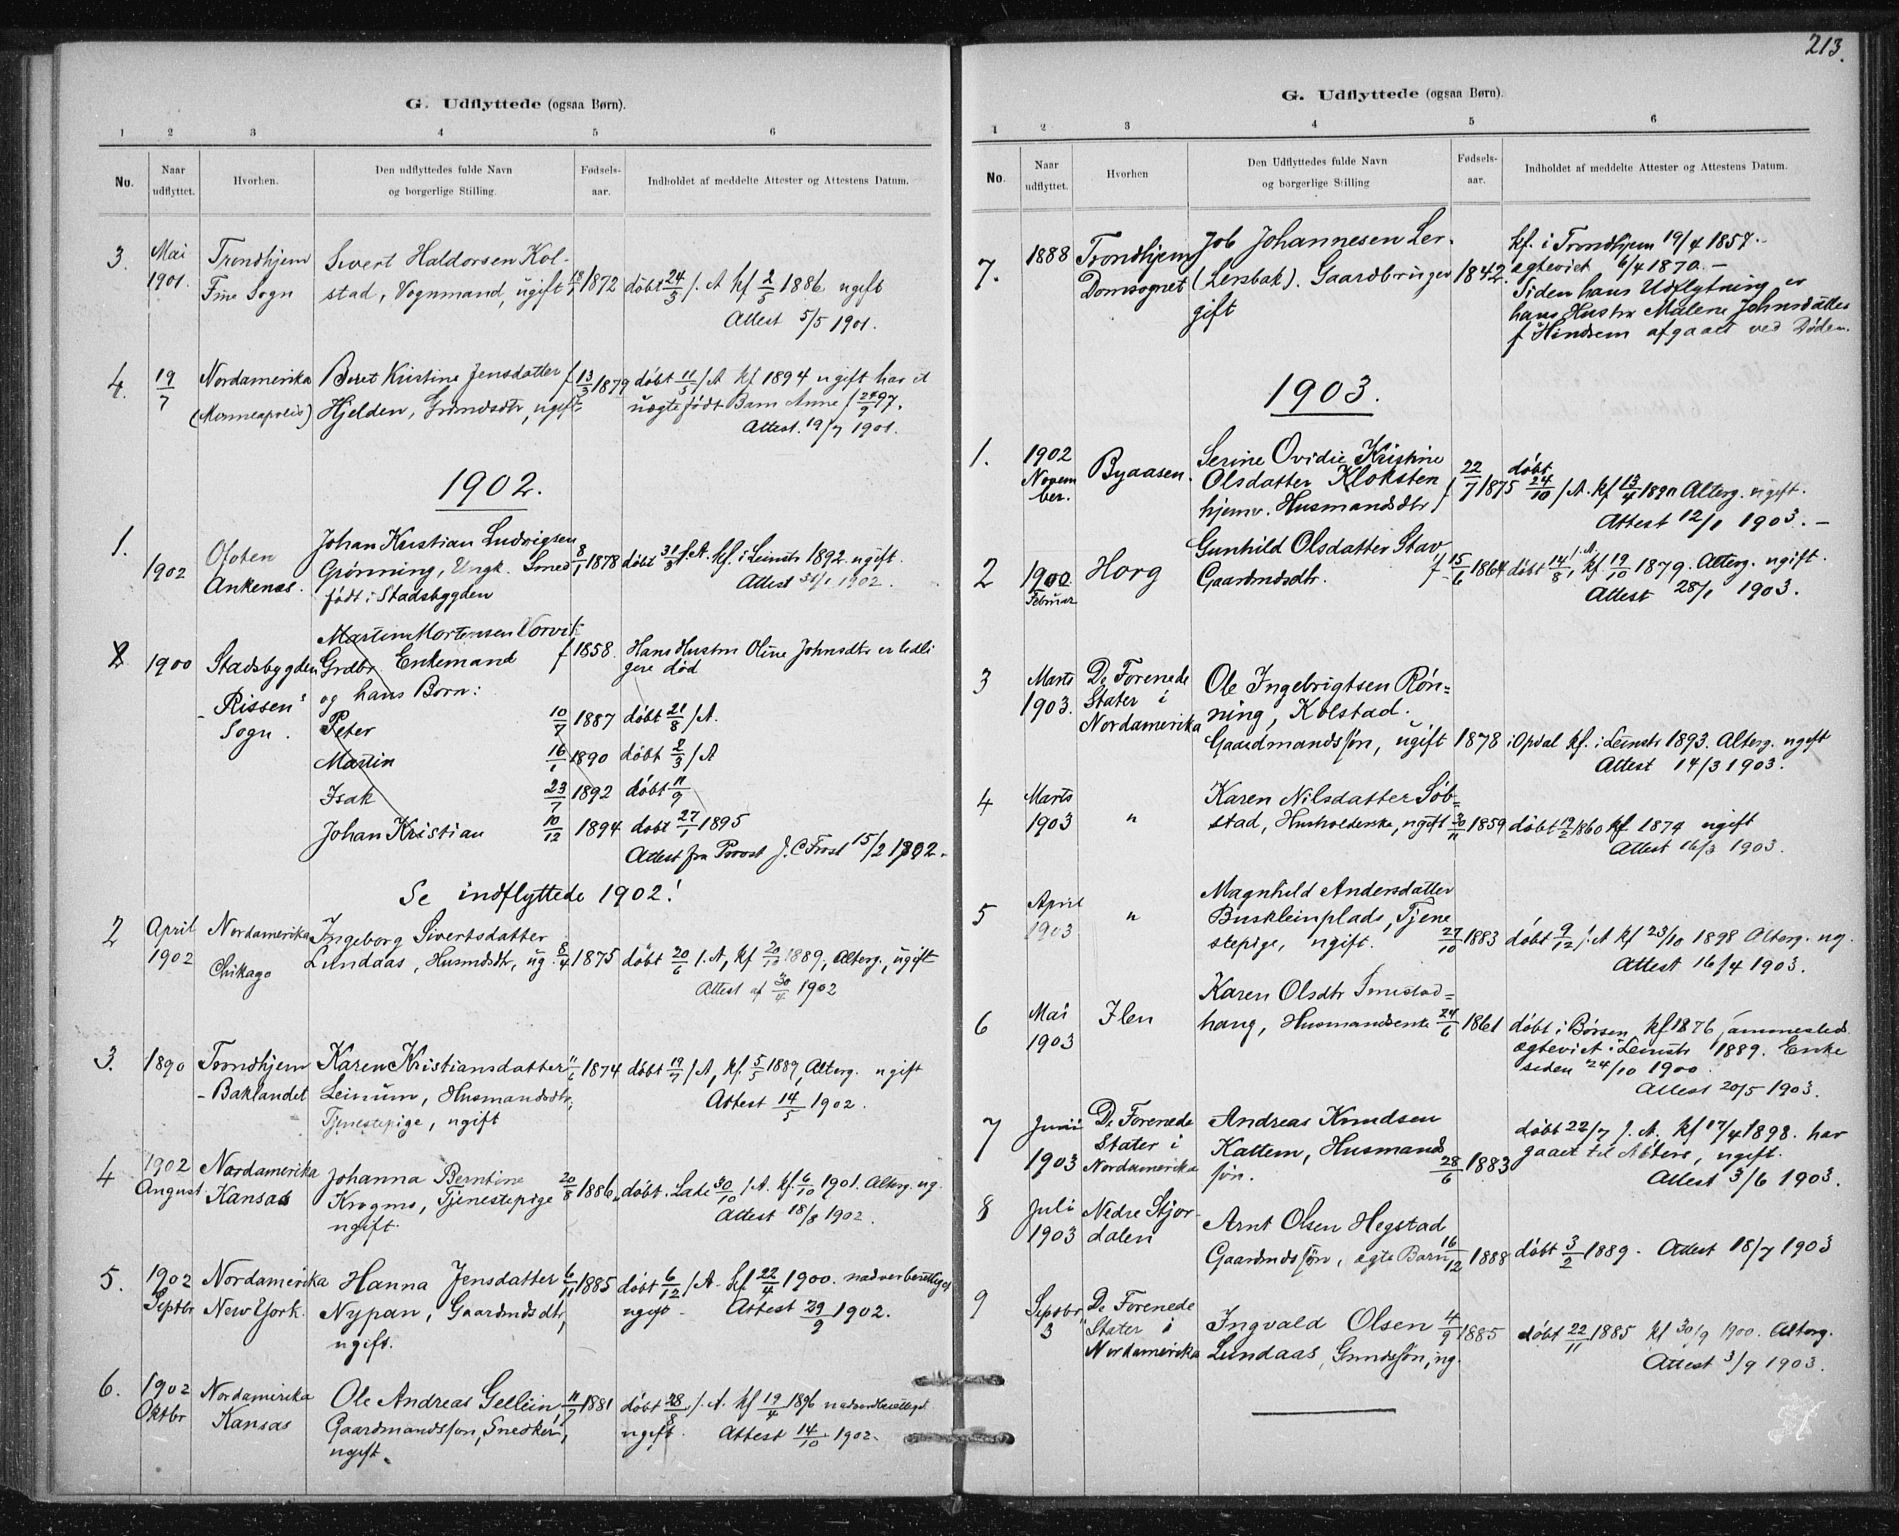 G. Udflyttede (ogsaa Børn).
1 2 3 4 5 6
No. Naar udflyttet. Hvorhen. Den udflyttedes fulde Navn og borgerlige Stilling. Fødsels-aar. Indholdet af meddelte Attester og Attestens Datum.
3. Mai Trondhjem Sivert Haldorsen Kol-
1901. Frue Sogn stad, Vognmand, ugift 18/1 1872 døbt 24/3 /. A kf 2/5 1886 ugift
Attest 5/5 1901.
4. 19/7 Nordamerika Beret Kristine Jensdatter f 13/3 1879 døbt 11/5 /A kf 1894 ugift har et
(Minneapolis) Hjelden, Grdmdsdtr, ugift uægte født Barn Anne f 24/9 97.
Attest. 19/7 1901.
1902.
1. Ofoten Johan Kristian Ludvigsen
1902 Ankenes. Grønning, Ungk. Smed 8/1 1878 døbt 31/3 f.A. kf. i Leinstr 1892 ugift.
født i Stadsbygden Attest 31/1 1902.
Martin Mortensen Vorvik
2 1900 Stadsbygden Grdbr. Enkemand f 1858. Hans Hustru Oline Johnsdtr er tidli
og hans Børn: gere død
- Rissen Peter 10/7 1887 døbt 21/8 /A.
Sogn. Martin 16/1 1890 døbt 2/3 /A
Isak 23/7 1892 døbt 11/9
Johan Kristian 10/12 1894 døbt 27/1 1895
Attest fra Provst J. C Frost 15/2 1902.
Se indflyttede 1902!
2 April Nordamerika Ingeborg Sivertsdatter
1902 Chikago Lundaas, Husmdsdtr, ug. 8/4 1875 døbt 20/6 /. A, kf 20/10 1889, Alterg., ugift
Attest af 30/4 1902
3. 1890 Trondhjem Karen Kristiansdatter 1874 døbt 19/7 /A, kf. 5/5 1889, Alterg. ugift
- Baklandet Leinum, Husmandsdtr, Attest 14/5 1902.
Tjenestepige, ugift
4 1902 Nordamerika Johanna Berntine
August Kansas Krogmo, Tjenestepige 20/8 1886, døbt i Lade 30/10 /A. kf. 6/10 1901. Alterg. ug.
ugift. Attest 18/8 1902.
5. 1902 Nordamerika Hanna Jensdatter 6/11 1885 døbt 6/12 /A. kf 22/4 1900. nadverberettiget
Septbr New York. Nypan, Gaardmdsdtr, ugift. Attest 29/9 1902.
ugift.
6. 1902 Nordamerika Ole Andreas Gellein 11/7 1881 døbt 28/8 /. A. kf 19/4 1896 nadverdberettiget
Oktbr Kansas Gaardmandssøn, Snedker, ugift. Attest 14/10 1902.
ugift.
213.
G. Udflyttede (ogsaa Børn).
1 2 3 4 5 6
No. Naar udflyttet. Hvorhen Den Udflyttedes fulde Navn og borgerlige Stilling Fødsels-aar. Indholdet af meddelte Attester og Attestens Datum.
7. 1888 Trondhjem Job Johannesen Ler- kf. i Trondhjem 19/4 1857.
Domsognet (Lersbak). Gaardbruger 1842. egteviet 6/4 1870. -
gift Siden hans Udflytning er
hans Hustru Malene Johnsdatter
f Hindsem afgaaet ved Døden.
1903.
1. 1902 Byaasen. Serine Ovidie Kristine
Novem Olsdatter Kloksten f 22/7 1875 døbt 24/10 /A. kf 13/4 1890 Alterg. ugift.
ber. hjemv. Husmandsdtr Attest 12/1 1903. -
2 1902 Horg Gunhild Olsdatter Stav
Februar Gaardmdsdtr. f 15/6 1864 døbt 14/8 /.A. kf 19/10 1879. Alterg. ugift.
Attest 28/1 1903.
3 Marts De Forenede Ole Ingebrigtsen Røn-
1903. Stater i ning, Kolstad.
Nordamerika Gaardmandssøn, ugift 1878 i Opdal kf. i Leinstr 1893. Alterg. ugift
Attest 14/3 1903.
4 Marts Karen Nilsdatter Søb-
1903 " stad, Husholderske, ugift 30/11 1859 døbt 19/2 1860 kf 1874 ugift
Attest 16/3 1903.
5 April Magnhild Andersdatter
1903 " Buskleinplads, Tjene
stepige, ugift. 27/10 1883 døbt 9/12 /. A kf 23/10 1898 Alterg. ug.
Attest 16/4 1903.
6 Mai Ilen Karen Olsdtr Smistad=
1903 haug, Husmandsenke 24/6 1861 døbt i Børsen, kf 1876, sammesteds
egteviet i Leinstr 1889. Enke
siden 24/10 1900.
Attest 20/5 1903.
7 Juni De Forenede Andreas Knudsen døbt 22/7 /. A. kf 17/4 1898. har
1903 Stater i Kattem, Husmands gaaet til Alters, ugift.
Nordamerika søn. 28/6 1883 Attest 3/6 1903.
8 Juli Nedre Stjør- Arnt Olsen Hegstad
1903 dalen Gaardmdssøn, egte Barn 16/12 1888 døbt 3/2 1889. Attest 18/7 1903
9 Septbr De Forenede Ingvald Olsen 4/9 1885 døbt 22/11 1885 kf 30/9 1900. Alterg.
3 Stater i Lundaas, Grmdssøn, ug. Attest 3/9 1903.
Nordamerika